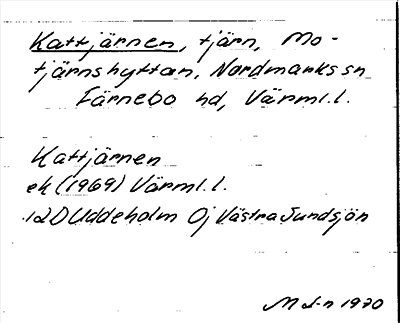 Kattjärnen, tjärn, Mo-
tjärnshyttan, Nordmarks sn
Färnebo hd, Värml.l.
Kattjärnen
ek (1969) Värml.l.
12D Uddeholm Oj Västra Sundsjön
1970